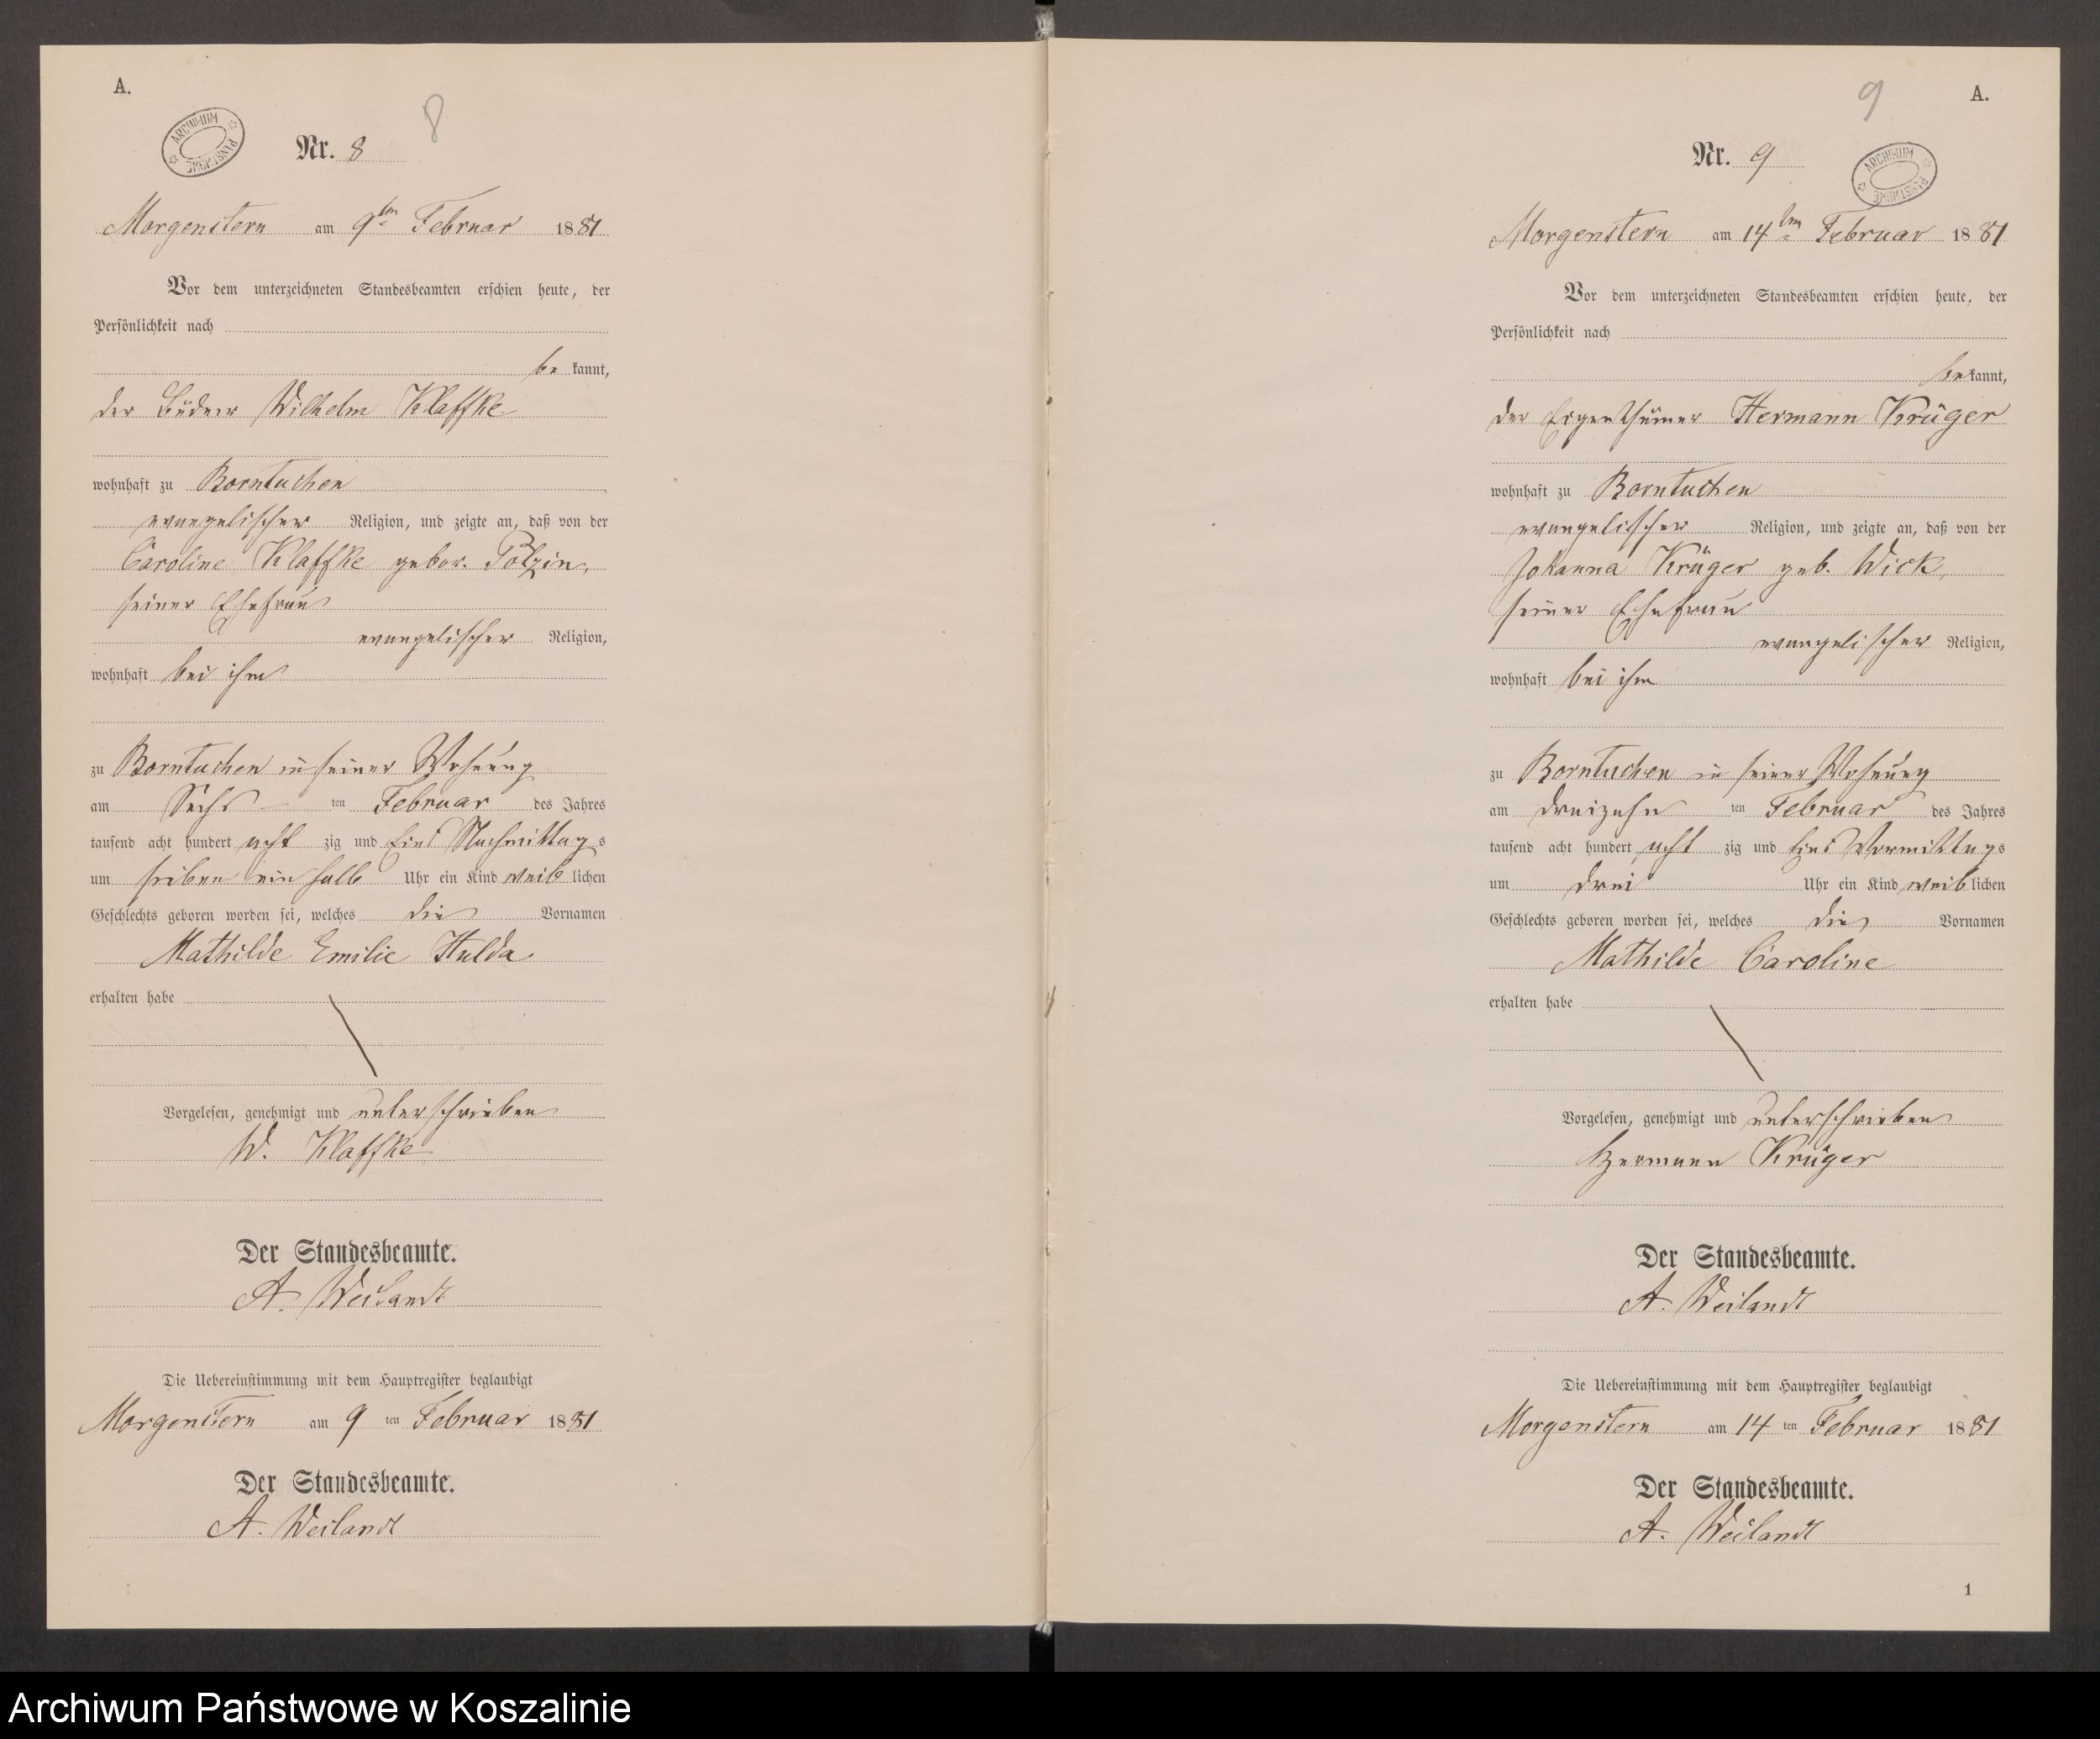 A.
ARCHIWUM PAŃSTWOWE
8
Nr. 8
Morgenstern am 9ten Februar 1881
Vor dem unterzeichneten Standesbeamten erschien heute, der
Persönlichkeit nach
be kannt,
der Büdner Wilhelm Klaffke
wohnhaft zu Borntuchen
evangelischer Religion, und zeigte an, daß von der
Caroline Klaffke gebor. Polzin,
seiner Ehefrau
evangelischer Religion,
wohnhaft bei ihm
zu Borntuchen in seiner Wohnung
am Sechs ten Februar des Jahres
tausend acht hundert acht zig und Eins Nachmittags
um sieben ein halb Uhr ein Kind weib lichen
Geschlechts geboren worden sei, welches die Vornamen
Mathilde Emilie Hulda
erhalten habe
Vorgelesen, genehmigt und unterschrieben
W. Klaffke
Der Standesbeamte.
A. Weilandt
Die Uebereinstimmung mit dem Hauptregister beglaubigt
Morgenstern am 9 ten Februar 1881
Der Standesbeamte.
A. Weilandt
9
A.
Nr. 9
ARCHIWUM PAŃSTWOWE
Morgenstern am 14ten Februar 1881
Vor dem unterzeichneten Standesbeamten erschien heute, der
Persönlichkeit nach
be kannt,
der Eigenthümer Hermann Krüger
wohnhaft zu Borntuchen
evangelischer Religion, und zeigte an, daß von der
Johanna Krüger geb. Wick,
seiner Ehefrau
evangelischer Religion,
wohnhaft bei ihm
zu Borntuchen in seiner Wohnung
am dreizehn ten Februar des Jahres
tausend acht hundert acht zig und Eins Vormittags
um drei Uhr ein Kind weib lichen
Geschlechts geboren worden sei, welches die Vornamen
Mathilde Caroline
erhalten habe
Vorgelesen, genehmigt und unterschrieben
Hermann Krüger
Der Standesbeamte.
A. Weilandt
Die Uebereinstimmung mit dem Hauptregister beglaubigt
Morgenstern am 14 ten Februar 1881
Der Standesbeamte.
A. Weilandt
1
Archiwum Państwowe w Koszalinie